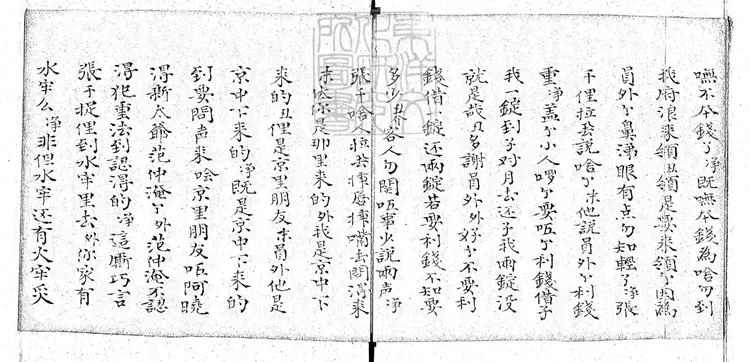 嘸不夲錢个淨既嘸夲錢為啥勿到
我府浪來領丑領是要來領个因為
員外个鼻涕眼有点勿知輕个淨張
千捏拉去說啥个末他說員外个利錢
重淨蓋个小人啰个要呸个利錢借子
我一錠到子对月去还子我兩錠没
就是哉丑多謝員外外好个不要利
錢借一錠还兩錠若要利錢不知要
多少丑介客人勿関呸事少說兩声淨
張千哈人拉去揮唇揮嘴去問得來
末你是那里來的外我是京中下
來的丑俚是京里朋友末員外他是
京中下來的淨既是京中下來的
到要問声來哙京里朋友呸阿曉
得新太爺范仲淹个外范仲淹不認
得犯重法到認得的淨這厮巧言
張千捉俚到水牢里去外你家有
水牢么淨非但水牢还有火牢災